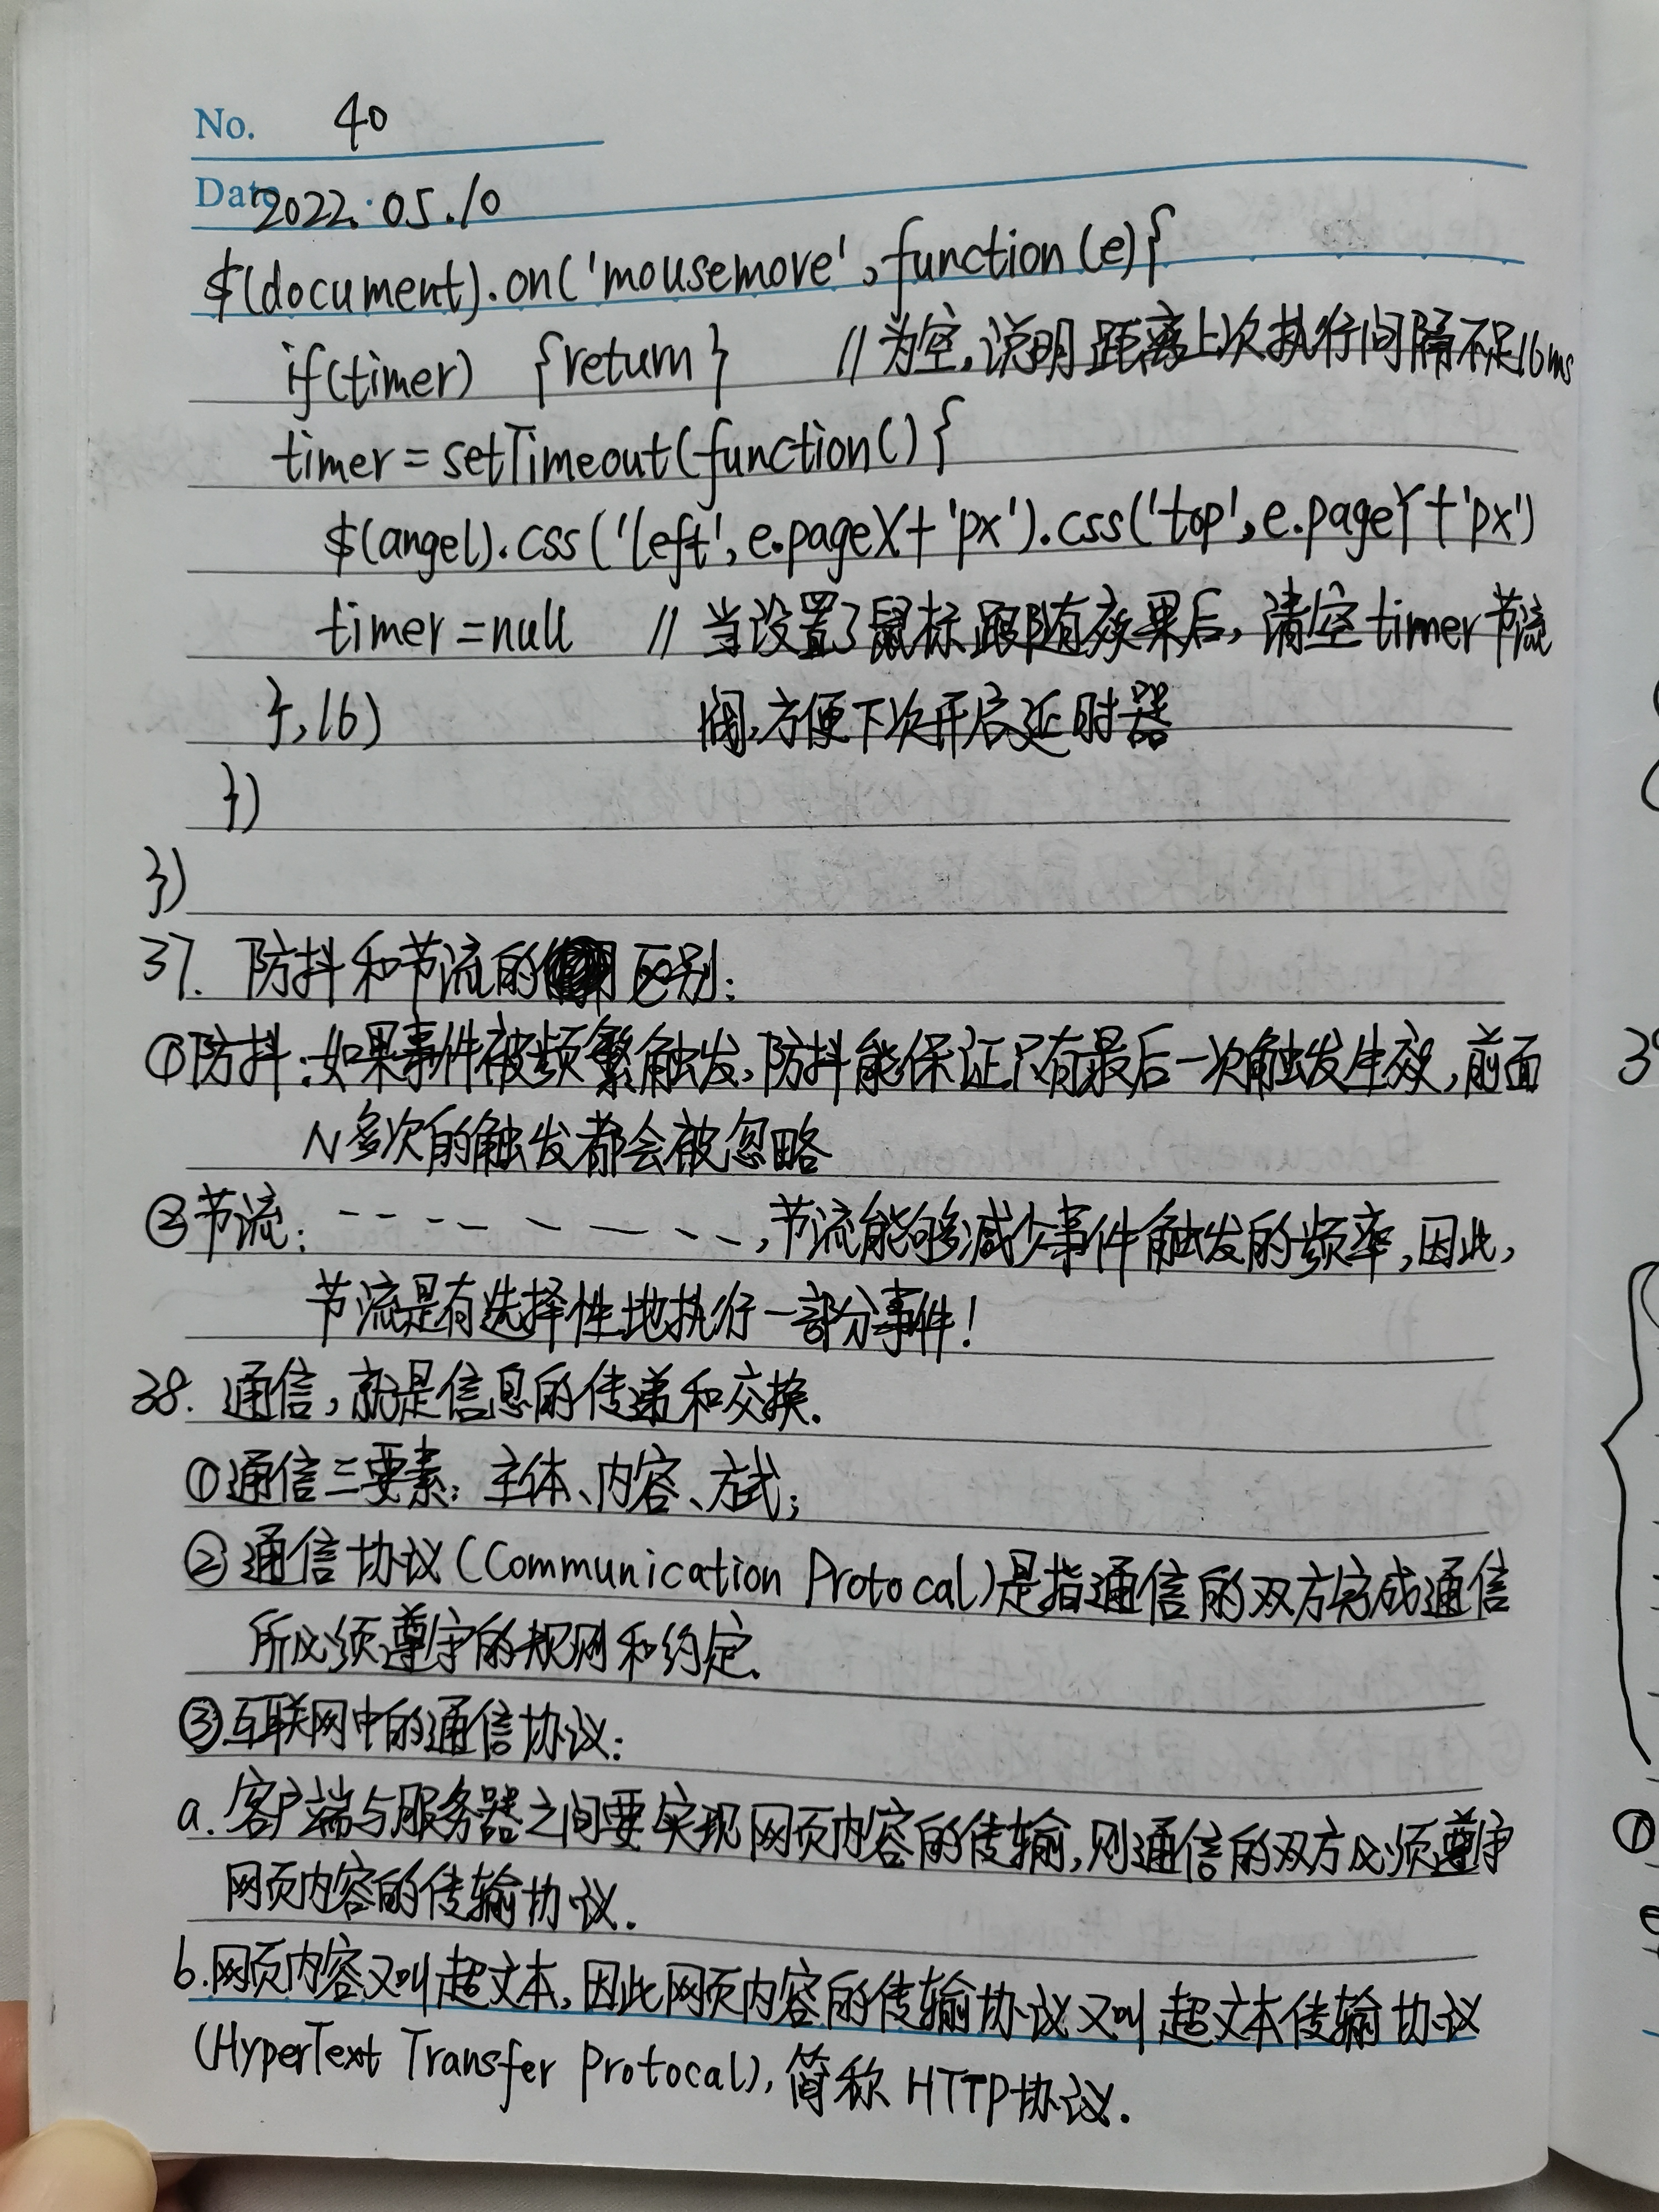 No. 40
Date 2022.05.10
$(document).on('mousemove', function(e){
if(timer) {return} //为空,说明距离上次执行间隔不足16ms
timer = setTimeout(function(){
$(angel).css('left', e.pageX+'px').css('top', e.pageY+'px')
timer=null // 当设置了鼠标跟随效果后,清空timer节流
},16) 阀,方便下次开启延时器
})
})
37. 防抖和节流的区别:
①防抖:如果事件被频繁触发,防抖能保证只有最后一次触发生效,前面
N多次的触发都会被忽略
②节流: ---------,节流能够减少事件触发的频率,因此,
节流是有选择性地执行一部分事件!
38. 通信,就是信息的传递和交换.
①通信三要素: 主体、内容、方式;
②通信协议(Communication Protocal)是指通信的双方完成通信
所必须遵守的规则和约定.
③互联网中的通信协议:
a. 客户端与服务器之间要实现网页内容的传输,则通信的双方必须遵守
网页内容的传输协议.
b.网页内容又叫超文本,因此网页内容的传输协议又叫超文本传输协议
(HyperText Transfer Protocal),简称HTTP协议.